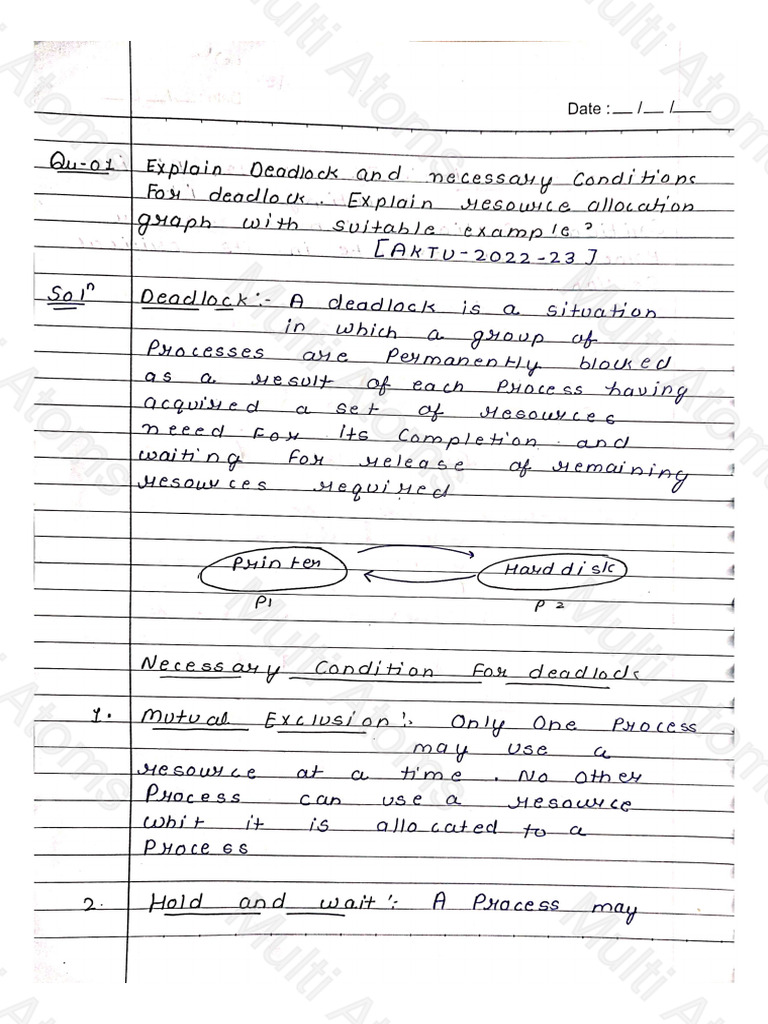 Date : __ / __ / ____
Qu-01: Explain Deadlock and necessary Conditions
For deadlock. Explain resource allocation
graph with suitable example?
[AKTU-2022-23]
Solⁿ Deadlock:- A deadlock is a situation
in which a group of
Processes are Permanently blocked
as a result of each Process having
acquired a set of resources
neeed For its Completion. and
waiting For release of remaining
resources required
Printer Hard disk
P1 P2
Necessary Condition For deadlock
1. Mutual Exclusion:- Only One Process
may use a
resource at a time. No other
Process can use a resource
whit it is allocated to a
Process
2. Hold and wait:- A Process may
Multi Atoms